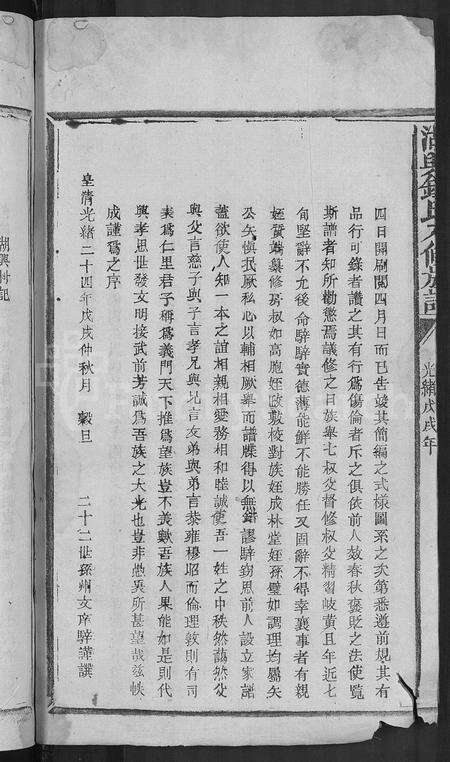 四日開刷閱四月日而已告竣其簡編之式樣圖系之矣第悉遵前規其有
品行可錄者讚之其有行為傷倫者斥之俱依前人效春秋褒貶之法使覽
斯譜者知所勸懲焉議修之日族舉七叔父督修叔父精習岐黃且年近七
旬堅辭不允後命騂騂實德薄能鮮不能勝任又固辭不得幸襄事者有親
姪贊端纂修房叔如高胞姪政數校對族姪成林堂姪孫璧如調理均屬矢
公矢慎抿厥私心以輔相厥舉而譜牒得以無錯謬騂窃思前人設立家譜
蓋欲使人知一本之誼相親相愛務相和睦誠使吾一姓之中秩然藹然父
與父言慈子與子言孝兄與兄言友弟與弟言恭雍穆昭而倫理敦則有司
表為仁里君子稱為義門天下推為望族豈不美歟吾族人果能如是則代
興孝思世發文明接武前芳誠為吾族之大光也豈非愚衷所甚望哉茲帙
成謹為之序
皇清光緒二十四年戊戌仲秋月 穀旦 二十二世孫炳文席騂謹譔
氏大修族譜
光緒戊戌年